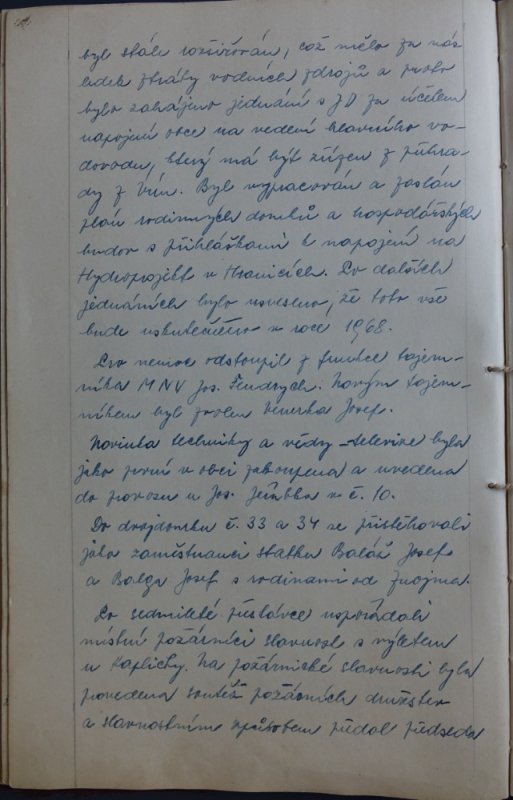 byl stále rozšiřován, což mělo za nás-
ledek ztráty vodních zdrojů a proto
bylo zahájeno jednání s JD za účelem
napojení obce na vedení hlavního vo-
dovodu, který má být zřízen z přehra-
dy z Vírn. Byl vypracován a zaslán
plán rodinných domků a hospodářských
budov s přihláškami k napojení na
Hydroprojekt v Hranicích. Po dalších
jednáních bylo usneseno, že toto vše
bude uskutečněno v roce 1968.
Pro nemoc odstoupil z funkce tajem-
níka MNV Jos. Fendrych. Novým tajem-
níkem byl zvolen Venerka Josef.
Novinka techniky a vědy - televize byla
jako první v obci zakoupena a uvedena
do provozu u Jos. v č. 10.
Do dvojdomku č. 33 a 34 se přistěhovali
jako zaměstnanci statku Baláž Josef
a Balga Josef s rodinami od Znojma.
Po sedmileté přestávce uspořádali
místní požárníci slavnost s výletem
u Kapličky. Na požárnické slavnosti byla
provedena soutěž požárních družstev
a slavnostním způsobem předal předseda